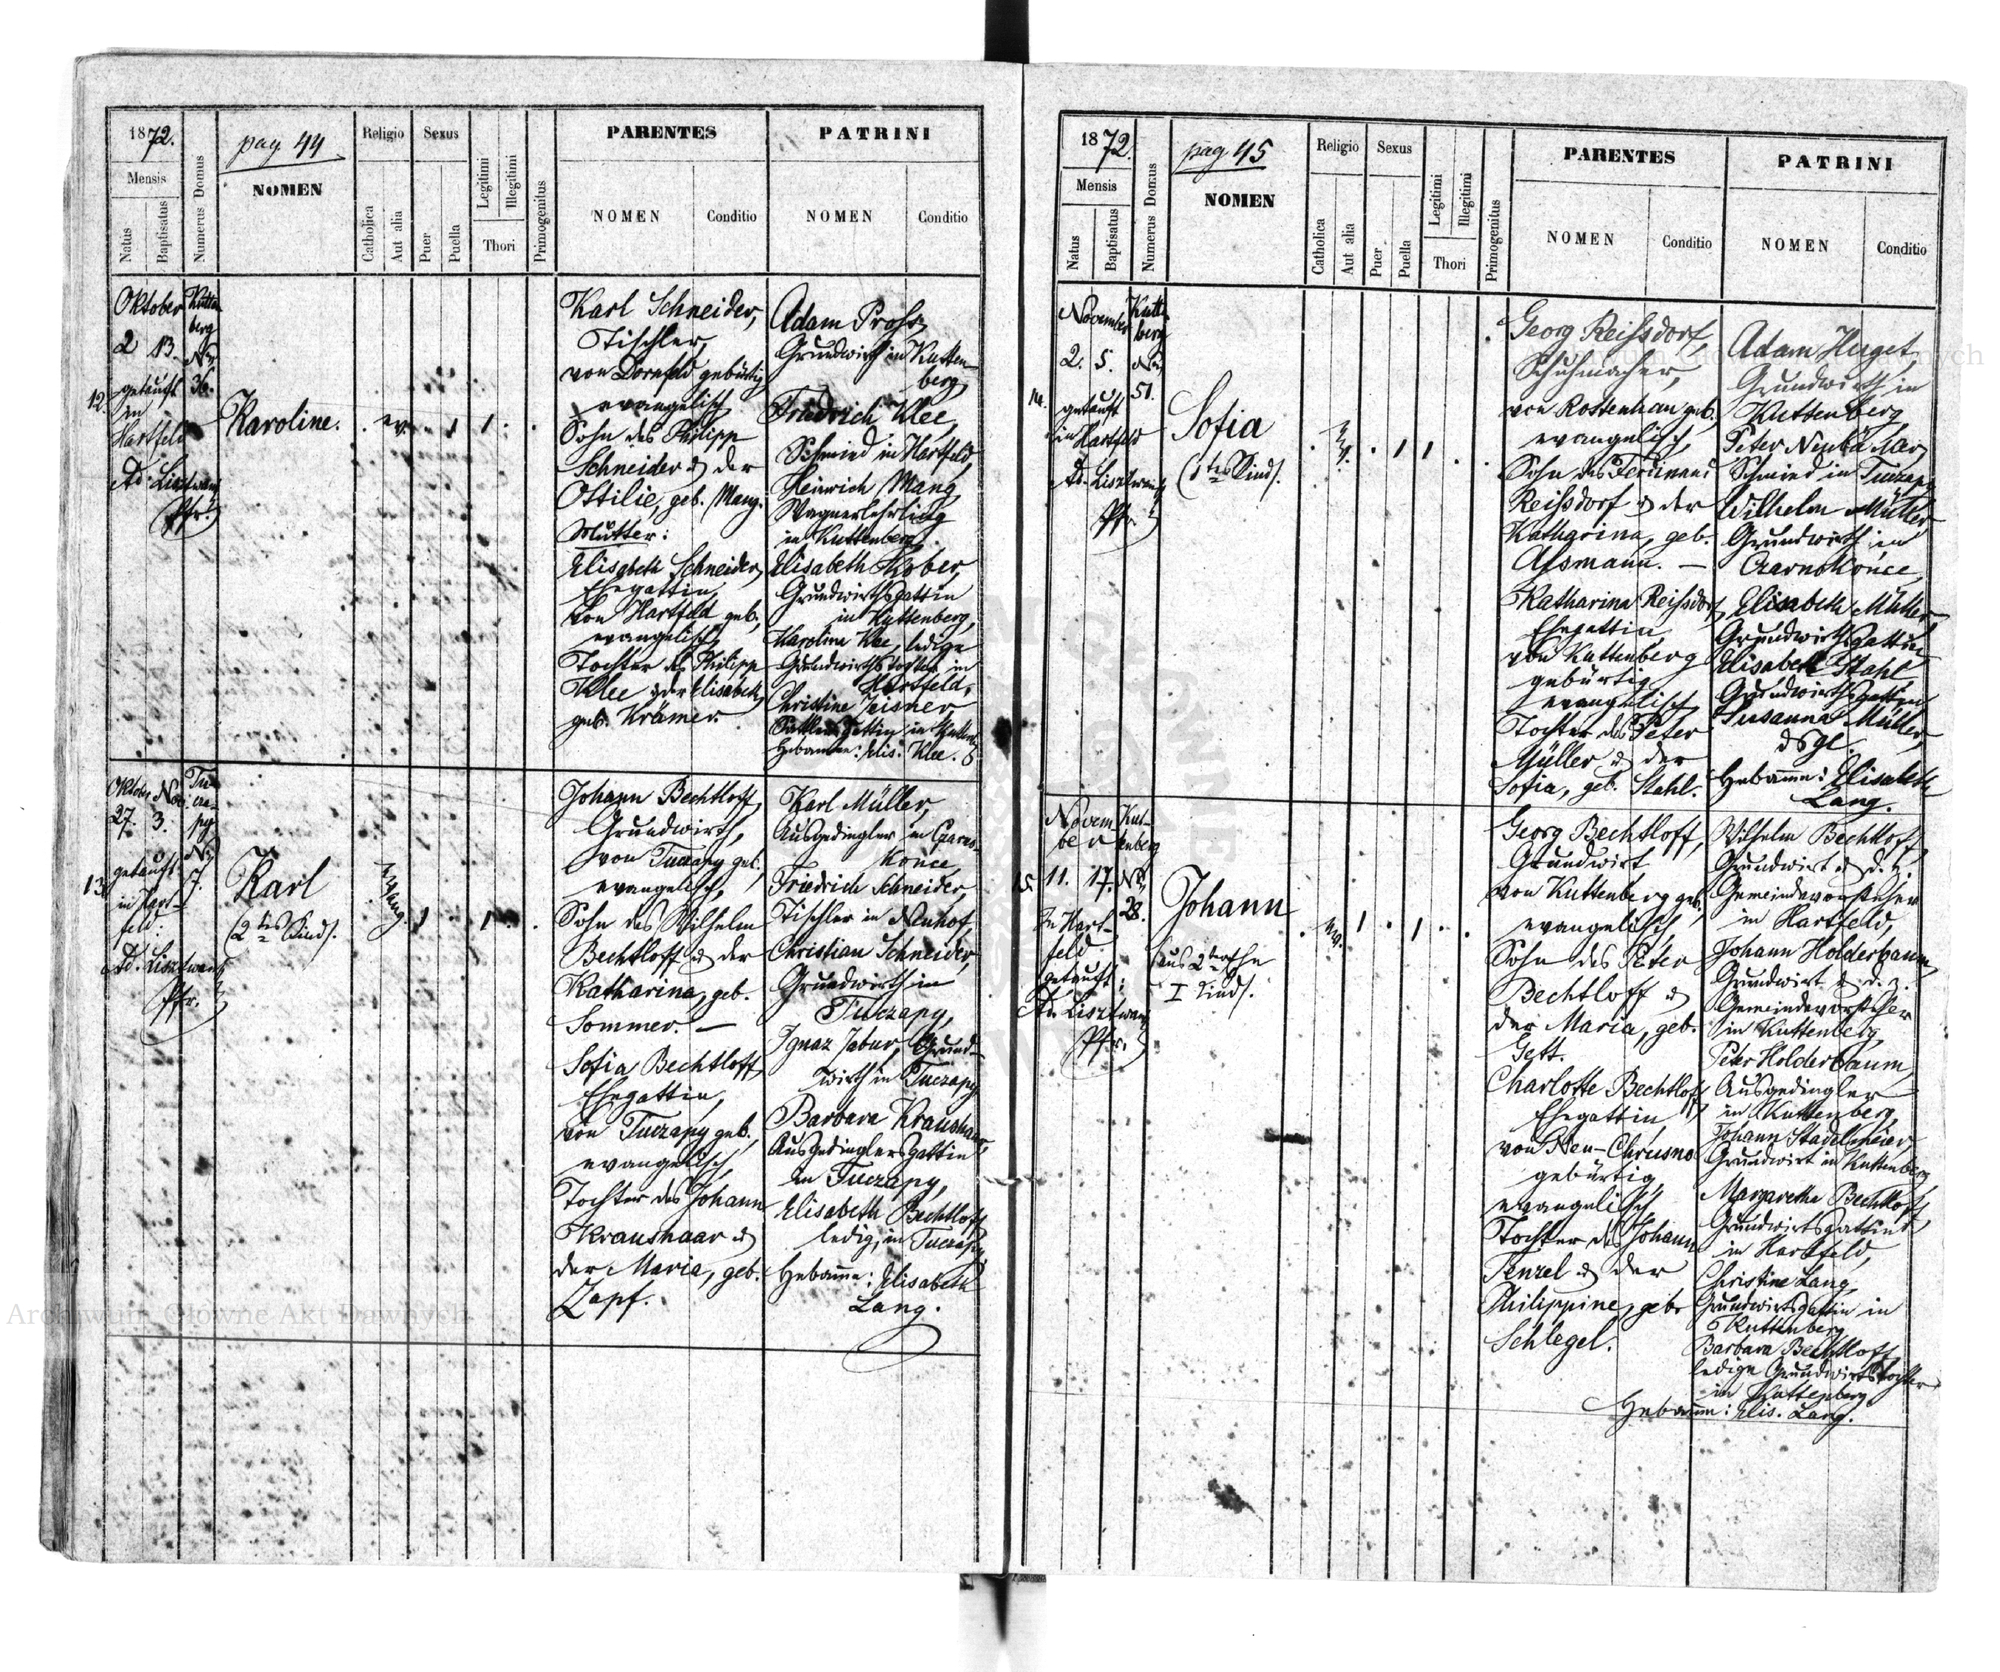 1872.
pag. 44
Religio
Sexus
PARENTES
PATRINI
Mensis
Natus
Baptisatus
Numerus Domus
NOMEN
Catholica
Aut alia
Puer
Puella
Legitimi
Illegitimi
Thori
Primogenitus
NOMEN
Conditio
NOMEN
Conditio
12.
Oktober
2 13.
getauft
in
Hartfeld
Ad. Lisztwan
Pfr.
Kutten
berg
No
36.
Karoline.
ev.
1
1
Karl Schneider,
Tischler,
von Dornfeld gebürtig
evangelisch
Sohn des Philipp
Schneider & der
Ottilie, geb. Mang.
Mutter:
Elisabeth Schneider,
Ehegattin,
von Hartfeld geb.,
evangelisch
Tochter des Philipp
Klee & der Elisabeth,
geb. Krämer.
Adam Profs,
Grundwirth in Kutten-
berg,
Friedrich Klee,
Schmied in Hartfeld,
Heinrich Mang
Wagnerlehrling
in Kuttenberg,
Elisabeth Kober,
Grundwirthsgattin
in Kuttenberg,
Karoline Klee, ledige
Grundwirthstochter in
Hartfeld,
Christine Zeisner
Hebamme: Elis. Klee.
13.
Oktob. Nov.
27. 3.
getauft
in Hart-
feld:
Ad. Lisztwan
Pfr.
Tu-
cza-
py
No
7.
Karl
(2tes Kind).
evang.
1
1
Johann Bechtloff,
Grundwirt,
von Tuczapy geb.,
evangelisch,
Sohn des Wilhelm
Bechtloff & der
Katharina, geb.
Sommer. —
Sofia Bechtloff,
Ehegattin,
von Tuczapy geb.,
evangelisch,
Tochter des Johann
Kraushaar &
der Maria, geb.
Zapf.
Karl Müller,
Ausgedingler in Czarno-
konce,
Friedrich Schneider,
Tischler in Neuhof,
Christian Schneider,
Grundwirth in
Tuczapy,
Ignaz Jabur, Grund-
wirth in Tuczapy
Barbara Kraushaar,
Ausgedinglersgattin
in Tuczapy,
Elisabeth Bechtloff
ledig, in Tuczapy,
Hebamme: Elisabeth
Lang.
1872.
pag 45
Religio
Sexus
PARENTES
PATRINI
Mensis
Natus
Baptisatus
Numerus Domus
NOMEN
Catholica
Aut alia
Puer
Puella
Legitimi
Illegitimi
Thori
Primogenitus
NOMEN
Conditio
NOMEN
Conditio
14.
November
2. 5.
getauft
in Hartfeld
Ad. Lisztwan
Pfr.
Kutten
berg
No
51.
Sofia
(1tes Kind).
ev.
1
1
Georg Reißdorf,
Schuhmacher,
von Rottenhan geb.,
evangelisch,
Sohn des Ferdinand
Reißdorf & der
Katharina, geb.
Assmann. —
Katharina Reißdorf,
Ehegattin,
von Kuttenberg
gebürtig
evangelisch
Tochter des Peter
Müller & der
Sofia, geb. Stahl.
Adam Herget,
Grundwirth in
Kuttenberg
Schmied in Tuczapy
Wilhelm Müller,
Grundwirth in
Czarnokonce,
Elisabeth Müller,
Grundwirthsgattin
Elisabeth Stahl,
Grundwirthsgattin
Susanna Müller,
dsgl.
Hebamme: Elisabeth
Lang.
15.
Novem-
ber
11. 17.
In Hart-
feld
getauft:
Ad. Lisztwan
Pfr.
Kut-
tenberg
No
28.
Johann
(aus 2ter Ehe
I Kind).
ev.
1
1
Georg Bechtloff,
Grundwirt
von Kuttenberg geb.,
evangelisch,
Sohn des Peter
Bechtloff &
der Maria, geb.
Gett.
Charlotte Bechtloff,
Ehegattin,
von Neu-Chrusno
gebürtig,
evangelisch
Tochter des Johann
Penzel & der
Philippine, geb.
Schlegel.
Wilhelm Bechtloff,
Grundwirt & d. z.
Gemeindevorsteher
in Hartfeld,
Johann Holderbaum,
Grundwirt & d. z.
Gemeindevorsteher
in Kuttenberg
Peter Holderbaum,
Ausgedingler
in Kuttenberg,
Johann Stadelmeier,
Grundwirt in Kuttenberg
Margaretha Bechtloff,
Grundwirtsgattin
in Hartfeld,
Christine Lang,
Grundwirtsgattin in
Kuttenberg
Barbara Bechtloff
ledige Grundwirtstochter
in Kuttenberg
Hebamm: Elis. Lang.
Archiwum Główne Akt Dawnych